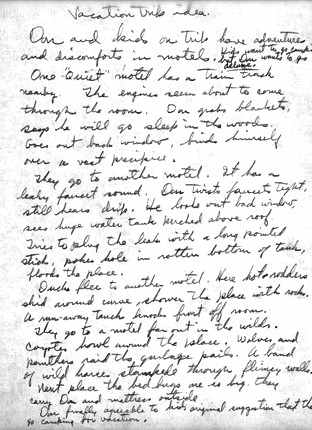 Vacation trip idea.
Don and kids on trip have adventures
and discomforts in motels. Kids want to go camping
but Don wants to go deluxe.
One "Quiet" motel has a train track
nearby. The engines seem about to come
through the room. Don grabs blankets,
says he will go sleep in the woods.
Goes out back window, finds himself
over a vast precipice.
They go to another motel. It has a
leaky faucet sound. Don twists faucets tight,
still hears drip. He looks out back window
sees huge water tank perched above roof
Tries to plug the leak with a long pointed
stick, pokes hole in rotten bottom of tank,
floods the place.
Ducks flee to another motel. Here hotrodders
skid around curve, shower the place with rocks.
A run-away truck knocks front off room.
They go to a motel far out in the wilds.
Coyotes howl around the place. Wolves and
panthers raid the garbage pails. A band
of wild horses stampede through flimsy walls.
Next place the bed bugs are so big, they
carry Don and mattress outside.
Don finally agreeable to kids original suggestion that they
go camping for vacation.